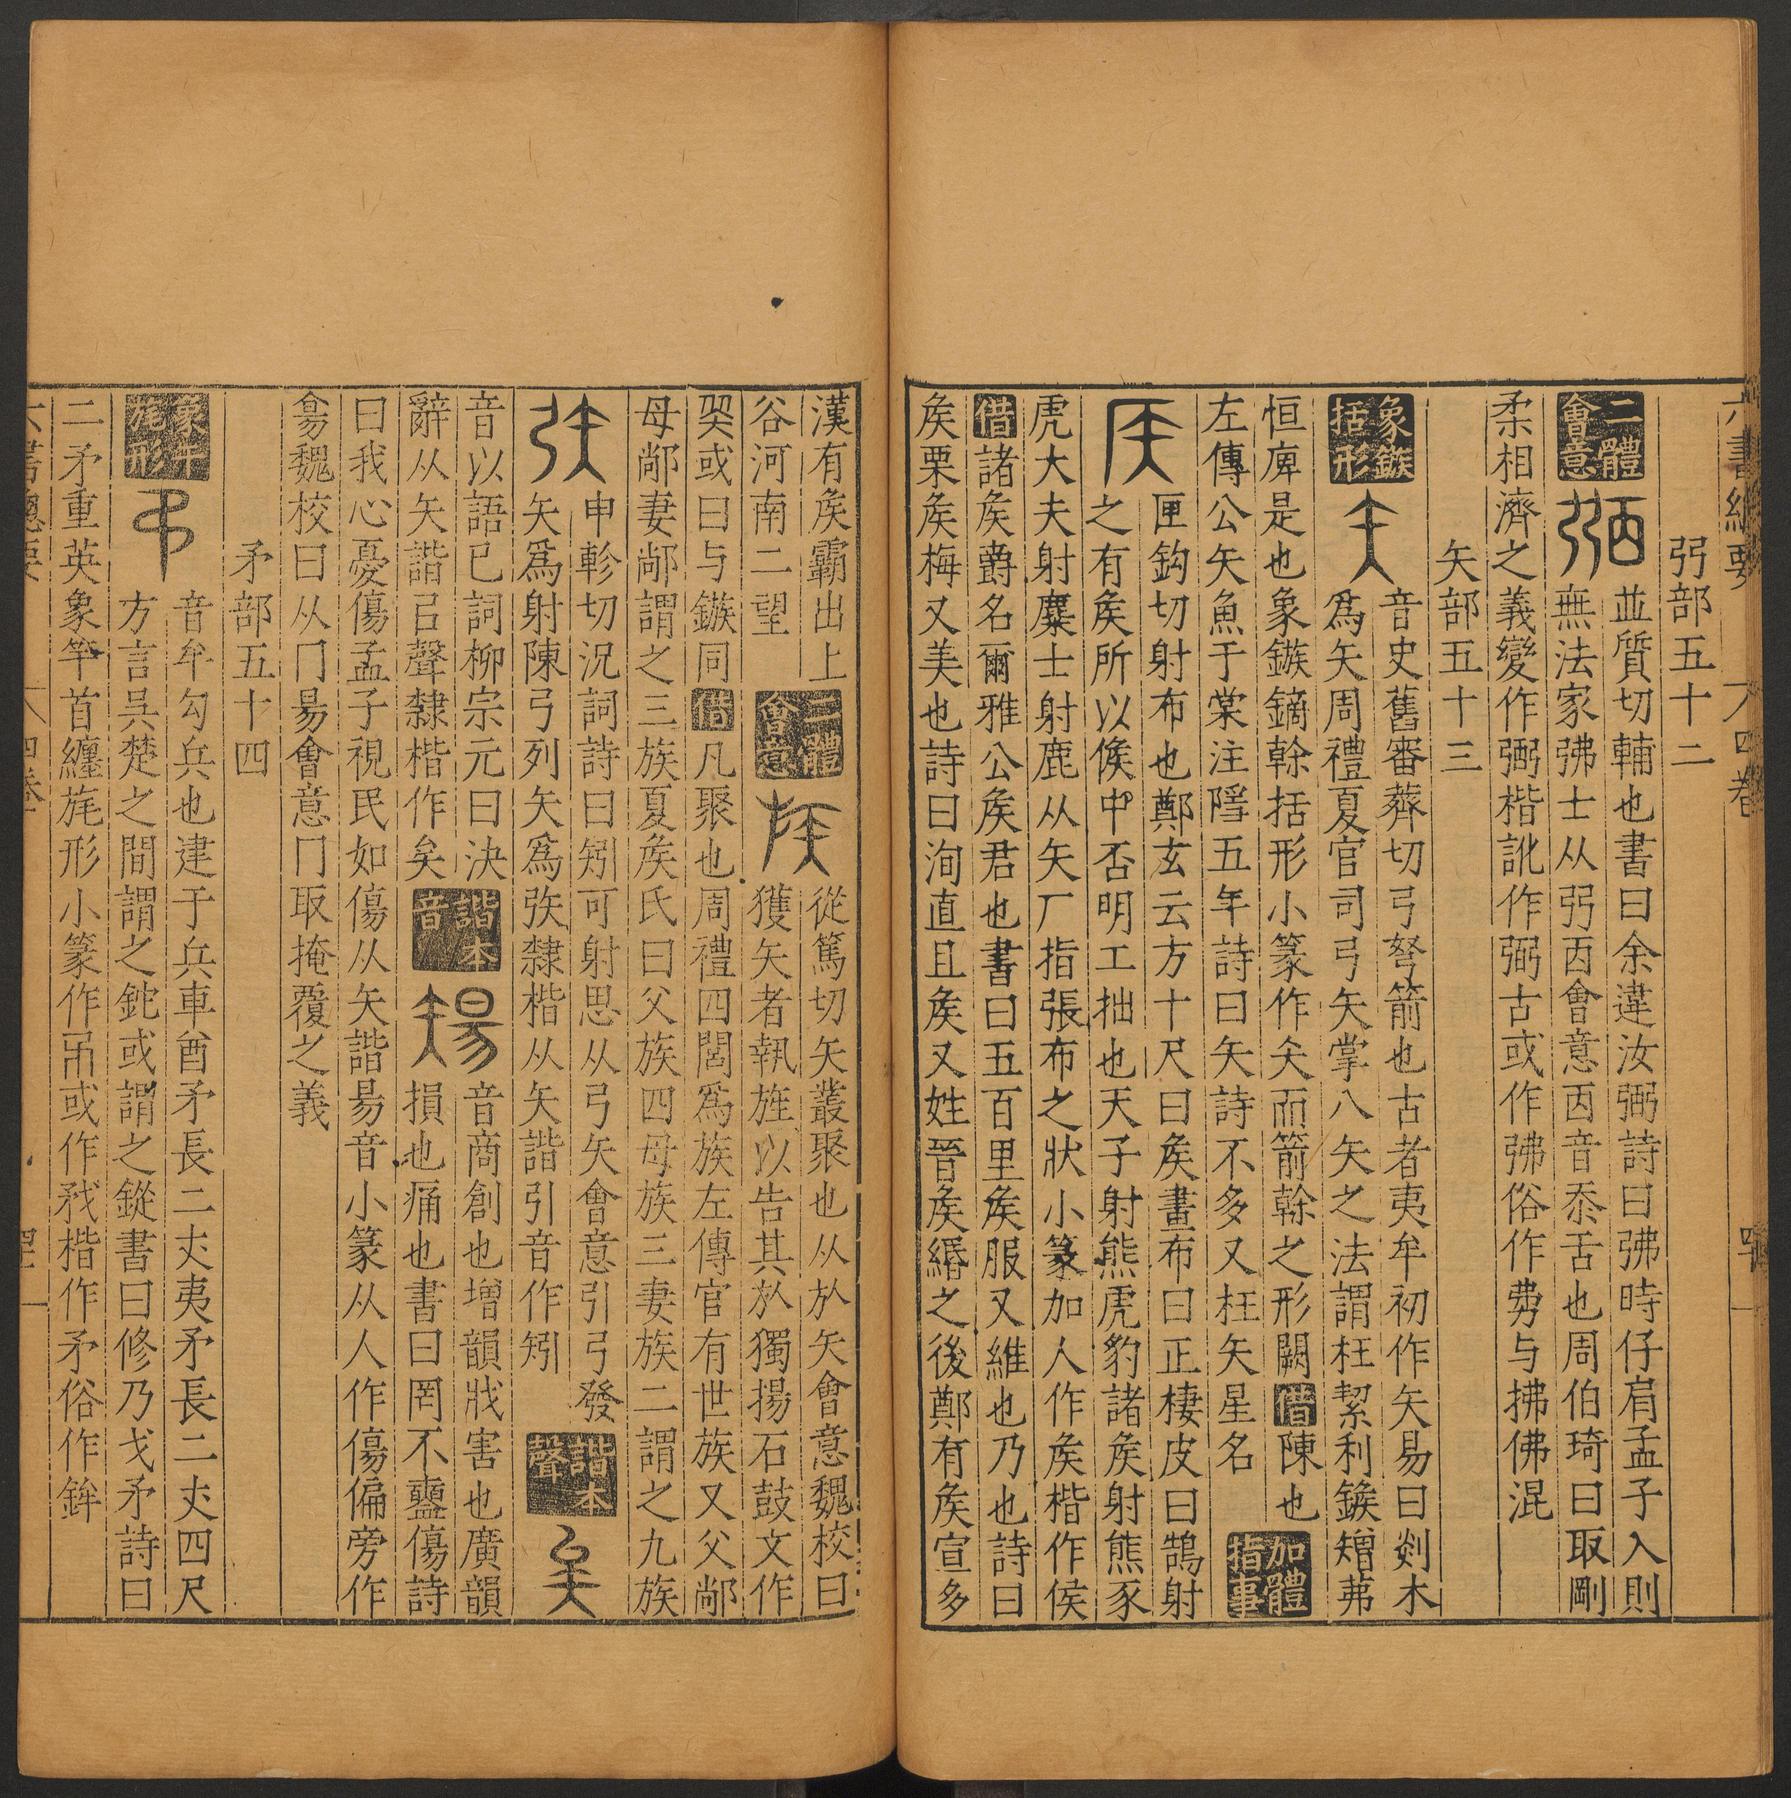 六書總要 四卷
弜部五十二
二體會意 弼 並質切輔也書曰余違汝弼詩曰弗時仔肩孟子入則
無法家弗士从弜㐁會意㐁音忝舌也周伯琦曰取剛
柔相濟之義變作弻楷訛作弼古或作弗俗作𢐀与拂佛混
矢部五十三
象鏃括形 矢 音史舊審薺切弓弩箭也古者夷牟初作矢易曰剡木
爲矢周禮夏官司弓矢掌八矢之法謂枉絜利鍭矰茀
恒庳是也象鏃鏑榦括形小篆作矢而箭榦之形闕 借 陳也
左傳公矢魚于棠注隱五年詩曰矢詩不多又枉矢星名 加體指事
𥎦 匣鈎切射布也鄭玄云方十尺曰矦畫布曰正棲皮曰鵠射
之有矦所以候中否明工拙也天子射熊虎豹諸矦射熊豕
虎大夫射麋士射鹿从矢厂指張布之狀小篆加人作矦楷作侯
借 諸矦爵名爾雅公矦君也書曰五百里矦服又維也乃也詩曰
矦栗矦梅又美也詩曰洵直且矦又姓晉矦緡之後鄭有矦宣多
漢有矦霸出上
谷河南二望 二體會意 族 從篤切矢叢聚也从㫃矢會意魏校曰
獲矢者執旌以告其㫃獨揚石鼓文作
𠔃或曰与鏃同 借 凡聚也周禮四閭爲族左傳官有世族又父鄗
母鄗妻鄗謂之三族夏矦氏曰父族四母族三妻族二謂之九族
矤 申軫切況詞詩曰矧可射思从弓矢會意引弓發
矢爲射陳弓列矢爲矤隸楷从矢諧引音作矧 諧本聲 矣
音以語已詞柳宗元曰決
辭从矢諧㠯聲隸楷作矣 諧本音 𥏻 音商創也增韻戕害也廣韻
損也痛也書曰罔不衋傷詩
曰我心憂傷孟子視民如傷从矢諧昜音小篆从人作傷偏旁作
𥏫魏校曰从冂昜會意冂取掩覆之義
矛部五十四
象竿旄形 矛 音牟勾兵也建于兵車酋矛長二丈夷矛長二丈四尺
方言吳楚之間謂之鉈或謂之鏦書曰修乃戈矛詩曰
二矛重英象竿首纏旄形小篆作矛或作𢦧楷作矛俗作鉾
六書總要 四卷